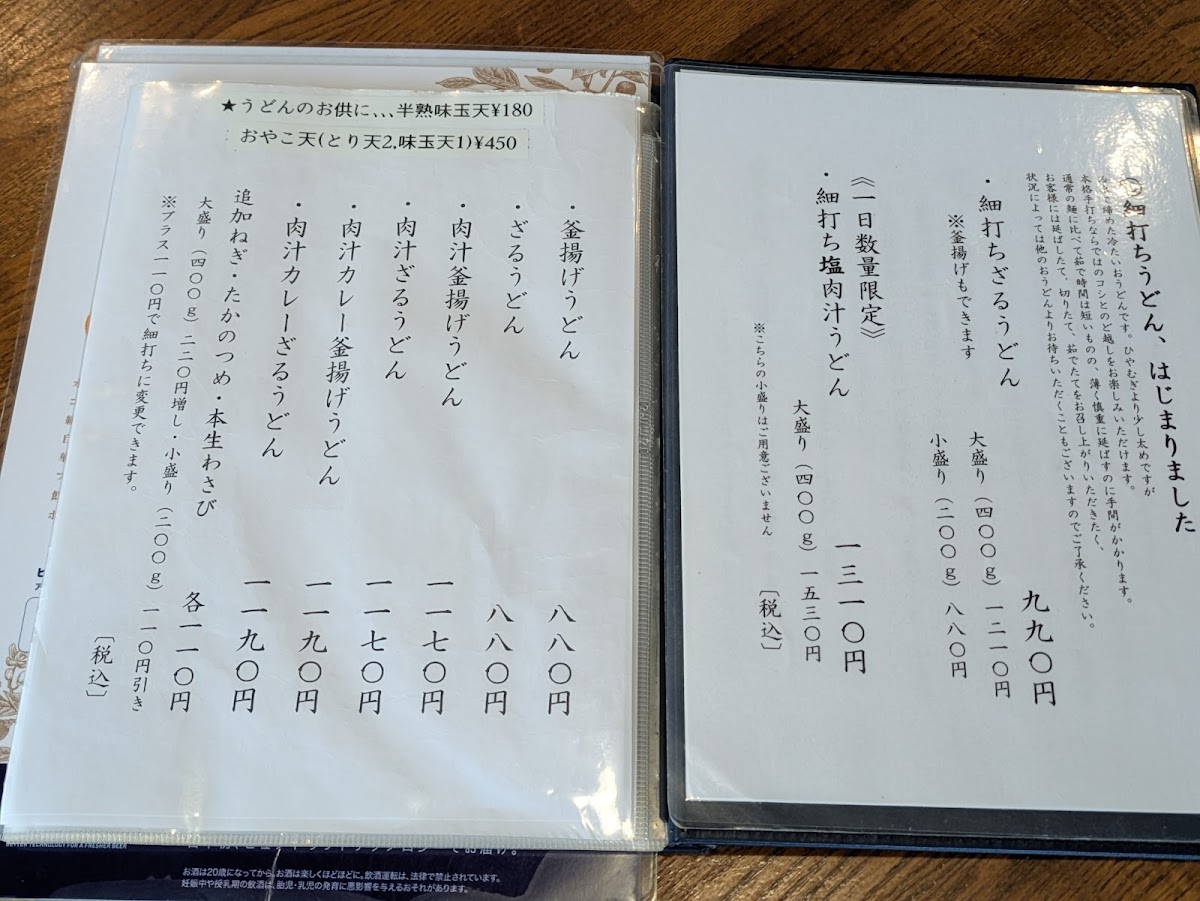 ★うどんのお供に、、、半熟味玉天¥180
おやこ天(とり天2,味玉天1)¥450
・釜揚げうどん 八八〇円
・ざるうどん 八八〇円
・肉汁釜揚げうどん 一一七〇円
・肉汁ざるうどん 一一七〇円
・肉汁カレー釜揚げうどん 一一九〇円
・肉汁カレーざるうどん 一一九〇円
追加ねぎ・たかのつめ・本生わさび 各一一〇円
大盛り（四〇〇ｇ）二二〇円増し・小盛り（二〇〇ｇ）一一〇円引き
※プラス一一〇円で細打ちに変更できます。
〔税込〕
細打ちうどん、はじまりました
締めた冷たいおうどんです。ひやむぎより少し太めですが
本格手打ちならではのコシとのど越しをお楽しみいただけます。
通常の麺に比べて茹で時間は短いものの、薄く慎重に延ばすのに手間がかかります。
お客様には延ばしたて、切りたて、茹でたてをお召し上がりいただきたく、
状況によっては他のおうどんよりお待ちいただくこともございますのでご了承ください。
・細打ちざるうどん 九九〇円
※釜揚げもできます
大盛り（四〇〇ｇ）一二一〇円
小盛り（二〇〇ｇ）八八〇円
《一日数量限定》
・細打ち塩肉汁うどん 一三一〇円
大盛り（四〇〇ｇ）一五三〇円
※こちらの小盛りはご用意ございません
〔税込〕
BETTER TECHNOLOGY FOR A FRESHER BEER
お酒は20歳になってから。お酒は楽しくほどほどに。飲酒運転は、法律で禁止されています。
妊娠中や授乳期の飲酒は、胎児・乳児の発育に悪影響を与えるおそれがあります。